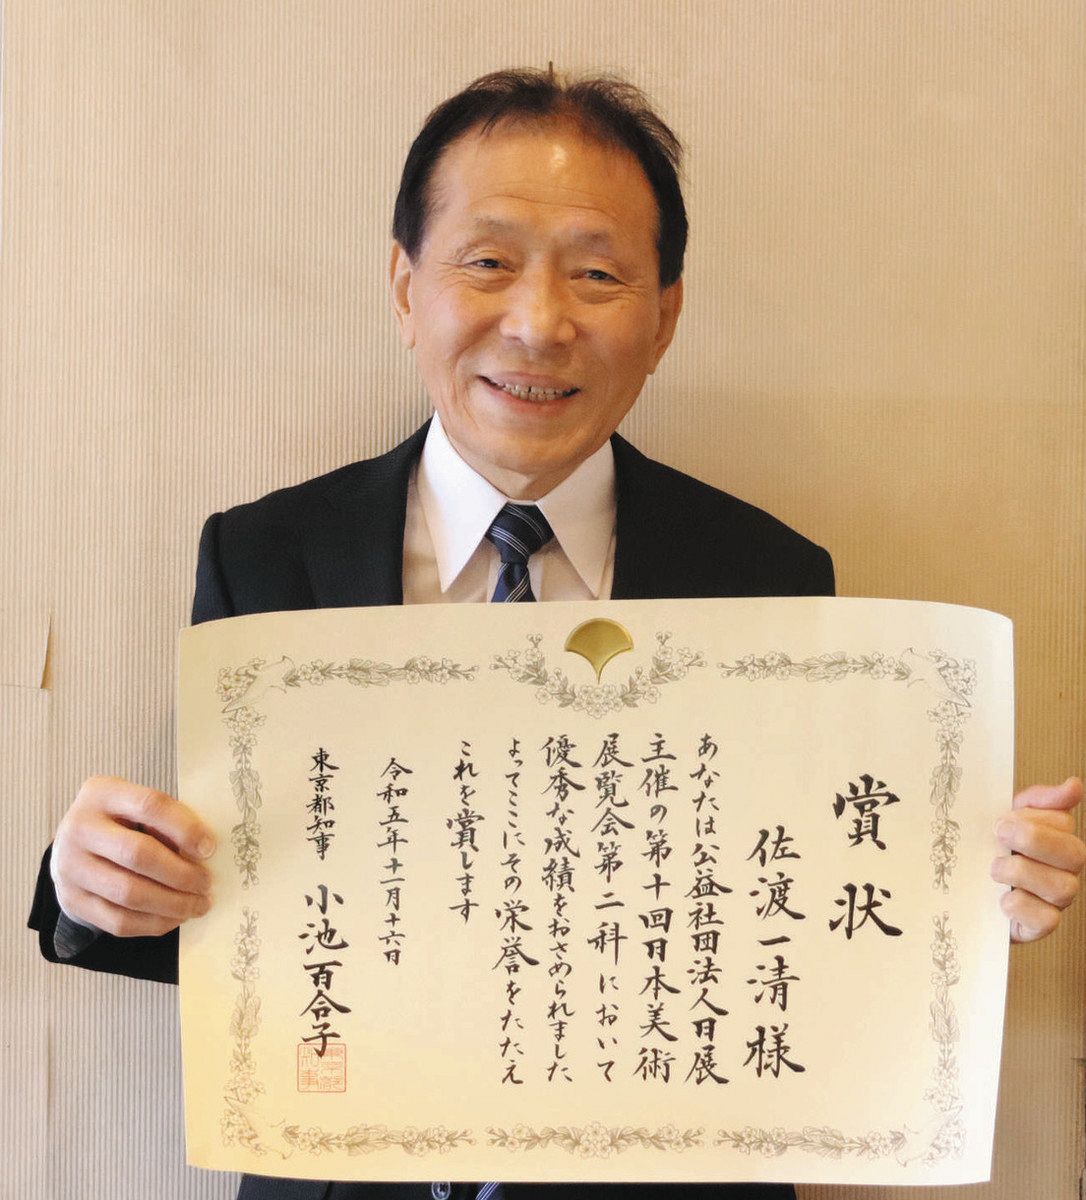 賞状
佐渡一清様
あなたは公益社団法人日展
主催の第十回日本美術
展覧会第二科において
優秀な成績をおさめられました
よってここにその栄誉をたたえ
これを賞します
令和五年十一月十六日
東京都知事 小池百合子